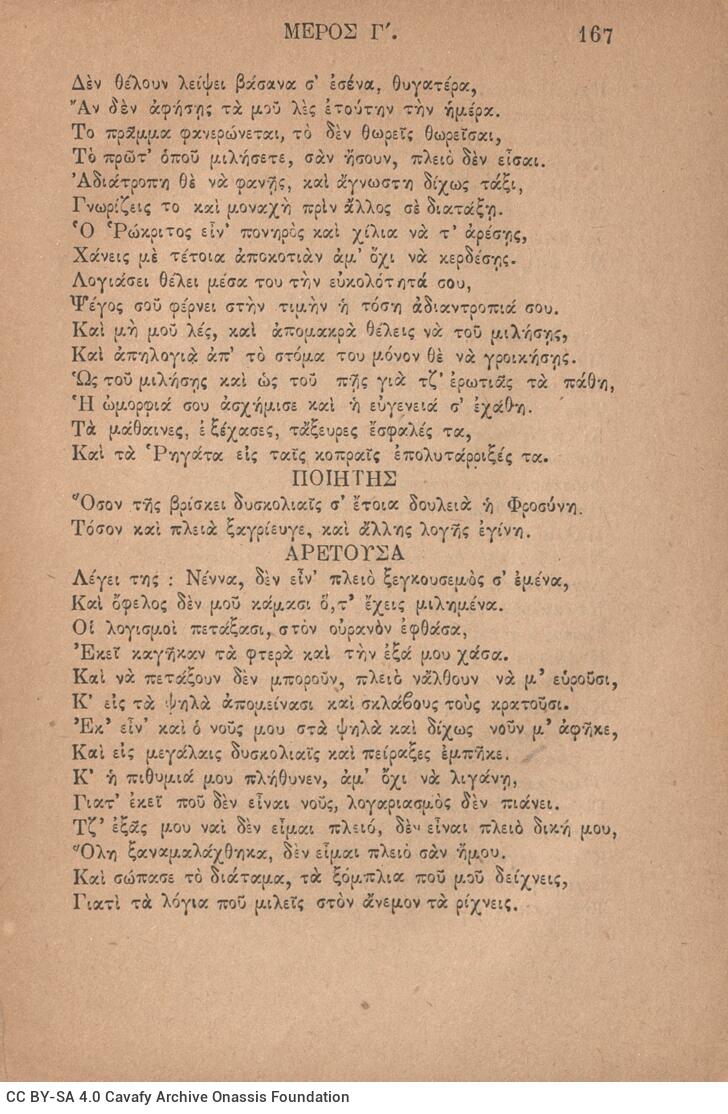 ΜΕΡΟΣ Γ΄. 167
Δὲν θέλουν λείψει βάσανα σ' ἐσένα, θυγατέρα,
Ἂν δὲν ἀφήσῃς τὰ μοῦ λὲς ἐτούτην τὴν ἡμέρα.
Το πρᾶμμα φανερώνεται, τὸ δὲν θωρεῖς θωρεῖσαι,
Τὸ πρῶτ' ὁποῦ μιλήσετε, σὰν ἤσουν, πλειὸ δὲν εἶσαι.
Ἀδιάτροπη θὲ νὰ φανῇς, καὶ ἄγνωστη δίχως τάξι,
Γνωρίζεις το καὶ μοναχὴ πρὶν ἄλλος σὲ διατάξῃ.
Ὁ Ῥώκριτος εἶν' πονηρὸς καὶ χίλια νὰ τ' ἀρέσῃς,
Χάνεις μὲ τέτοια ἀποκοτιὰν ἀμ' ὄχι νὰ κερδέσῃς.
Λογιάσει θέλει μέσα του τὴν εὐκολότητά σου,
Ψέγος σοῦ φέρνει στὴν τιμὴν ἡ τόση ἀδιαντροπιά σου.
Καὶ μὴ μοῦ λές, καὶ ἀπομακρὰ θέλεις νὰ τοῦ μιλήσῃς,
Καὶ ἀπηλογιὰ ἀπ' τὸ στόμα του μόνον θὲ νὰ γροικήσῃς.
Ὥς τοῦ μιλήσῃς καὶ ὡς τοῦ πῇς γιὰ τζ' ἐρωτιᾶς τὰ πάθη,
Ἡ ὠμορφιά σου ἀσχήμισε καὶ ἡ εὐγενειά σ' ἐχάθη.
Τὰ μάθαινες, ἐξέχασες, τἄξευρες ἔσφαλές τα,
Καὶ τὰ Ῥηγάτα εἰς ταῖς κοπραῖς ἐπολυτάρριξές τα.
ΠΟΙΗΤΗΣ
Ὅσον τῆς βρίσκει δυσκολιαῖς σ' ἔτοια δουλειὰ ἡ Φροσύνη.
Τόσον καὶ πλειὰ ξαγρίευγε, καὶ ἄλλης λογῆς ἐγίνη.
ΑΡΕΤΟΥΣΑ
Λέγει της : Νέννα, δὲν εἶν' πλειὸ ξεγκουσεμὸς σ' ἐμένα,
Καὶ ὄφελος δὲν μοῦ κάμασι ὅ,τ' ἔχεις μιλημένα.
Οἱ λογισμοὶ πετάξασι, στὸν οὐρανὸν ἐφθάσα,
Ἐκεῖ καγῆκαν τὰ φτερὰ καὶ τὴν ἐξά μου χάσα.
Καὶ νὰ πετάξουν δὲν μποροῦν, πλειὸ νἄλθουν νὰ μ' εὑροῦσι,
Κ' εἰς τὰ ψηλὰ ἀπομείνασι καὶ σκλάβους τοὺς κρατοῦσι.
Ἐκ' εἶν' καὶ ὁ νοῦς μου στὰ ψηλὰ καὶ δίχως νοῦν μ' ἀφῆκε,
Καὶ εἰς μεγάλαις δυσκολιαῖς καὶ πείραξες ἐμπῆκε.
Κ' ἡ πιθυμιά μου πλήθυνεν, ἀμ' ὄχι νὰ λιγάνῃ,
Γιατ' ἐκεῖ ποῦ δὲν εἶναι νοῦς, λογαριασμὸς δὲν πιάνει.
Τζ' ἐξᾶς μου ναὶ δὲν εἶμαι πλειό, δὲν εἶναι πλειὸ δική μου,
Ὅλη ξαναμαλάχθηκα, δὲν εἶμαι πλειὸ σὰν ἤμου.
Καὶ σώπασε τὸ διάταμα, τὰ ξόμπλια ποῦ μοῦ δείχνεις,
Γιατὶ τὰ λόγια ποῦ μιλεῖς στὸν ἄνεμον τὰ ρίχνεις.
CC BY-SA 4.0 Cavafy Archive Onassis Foundation